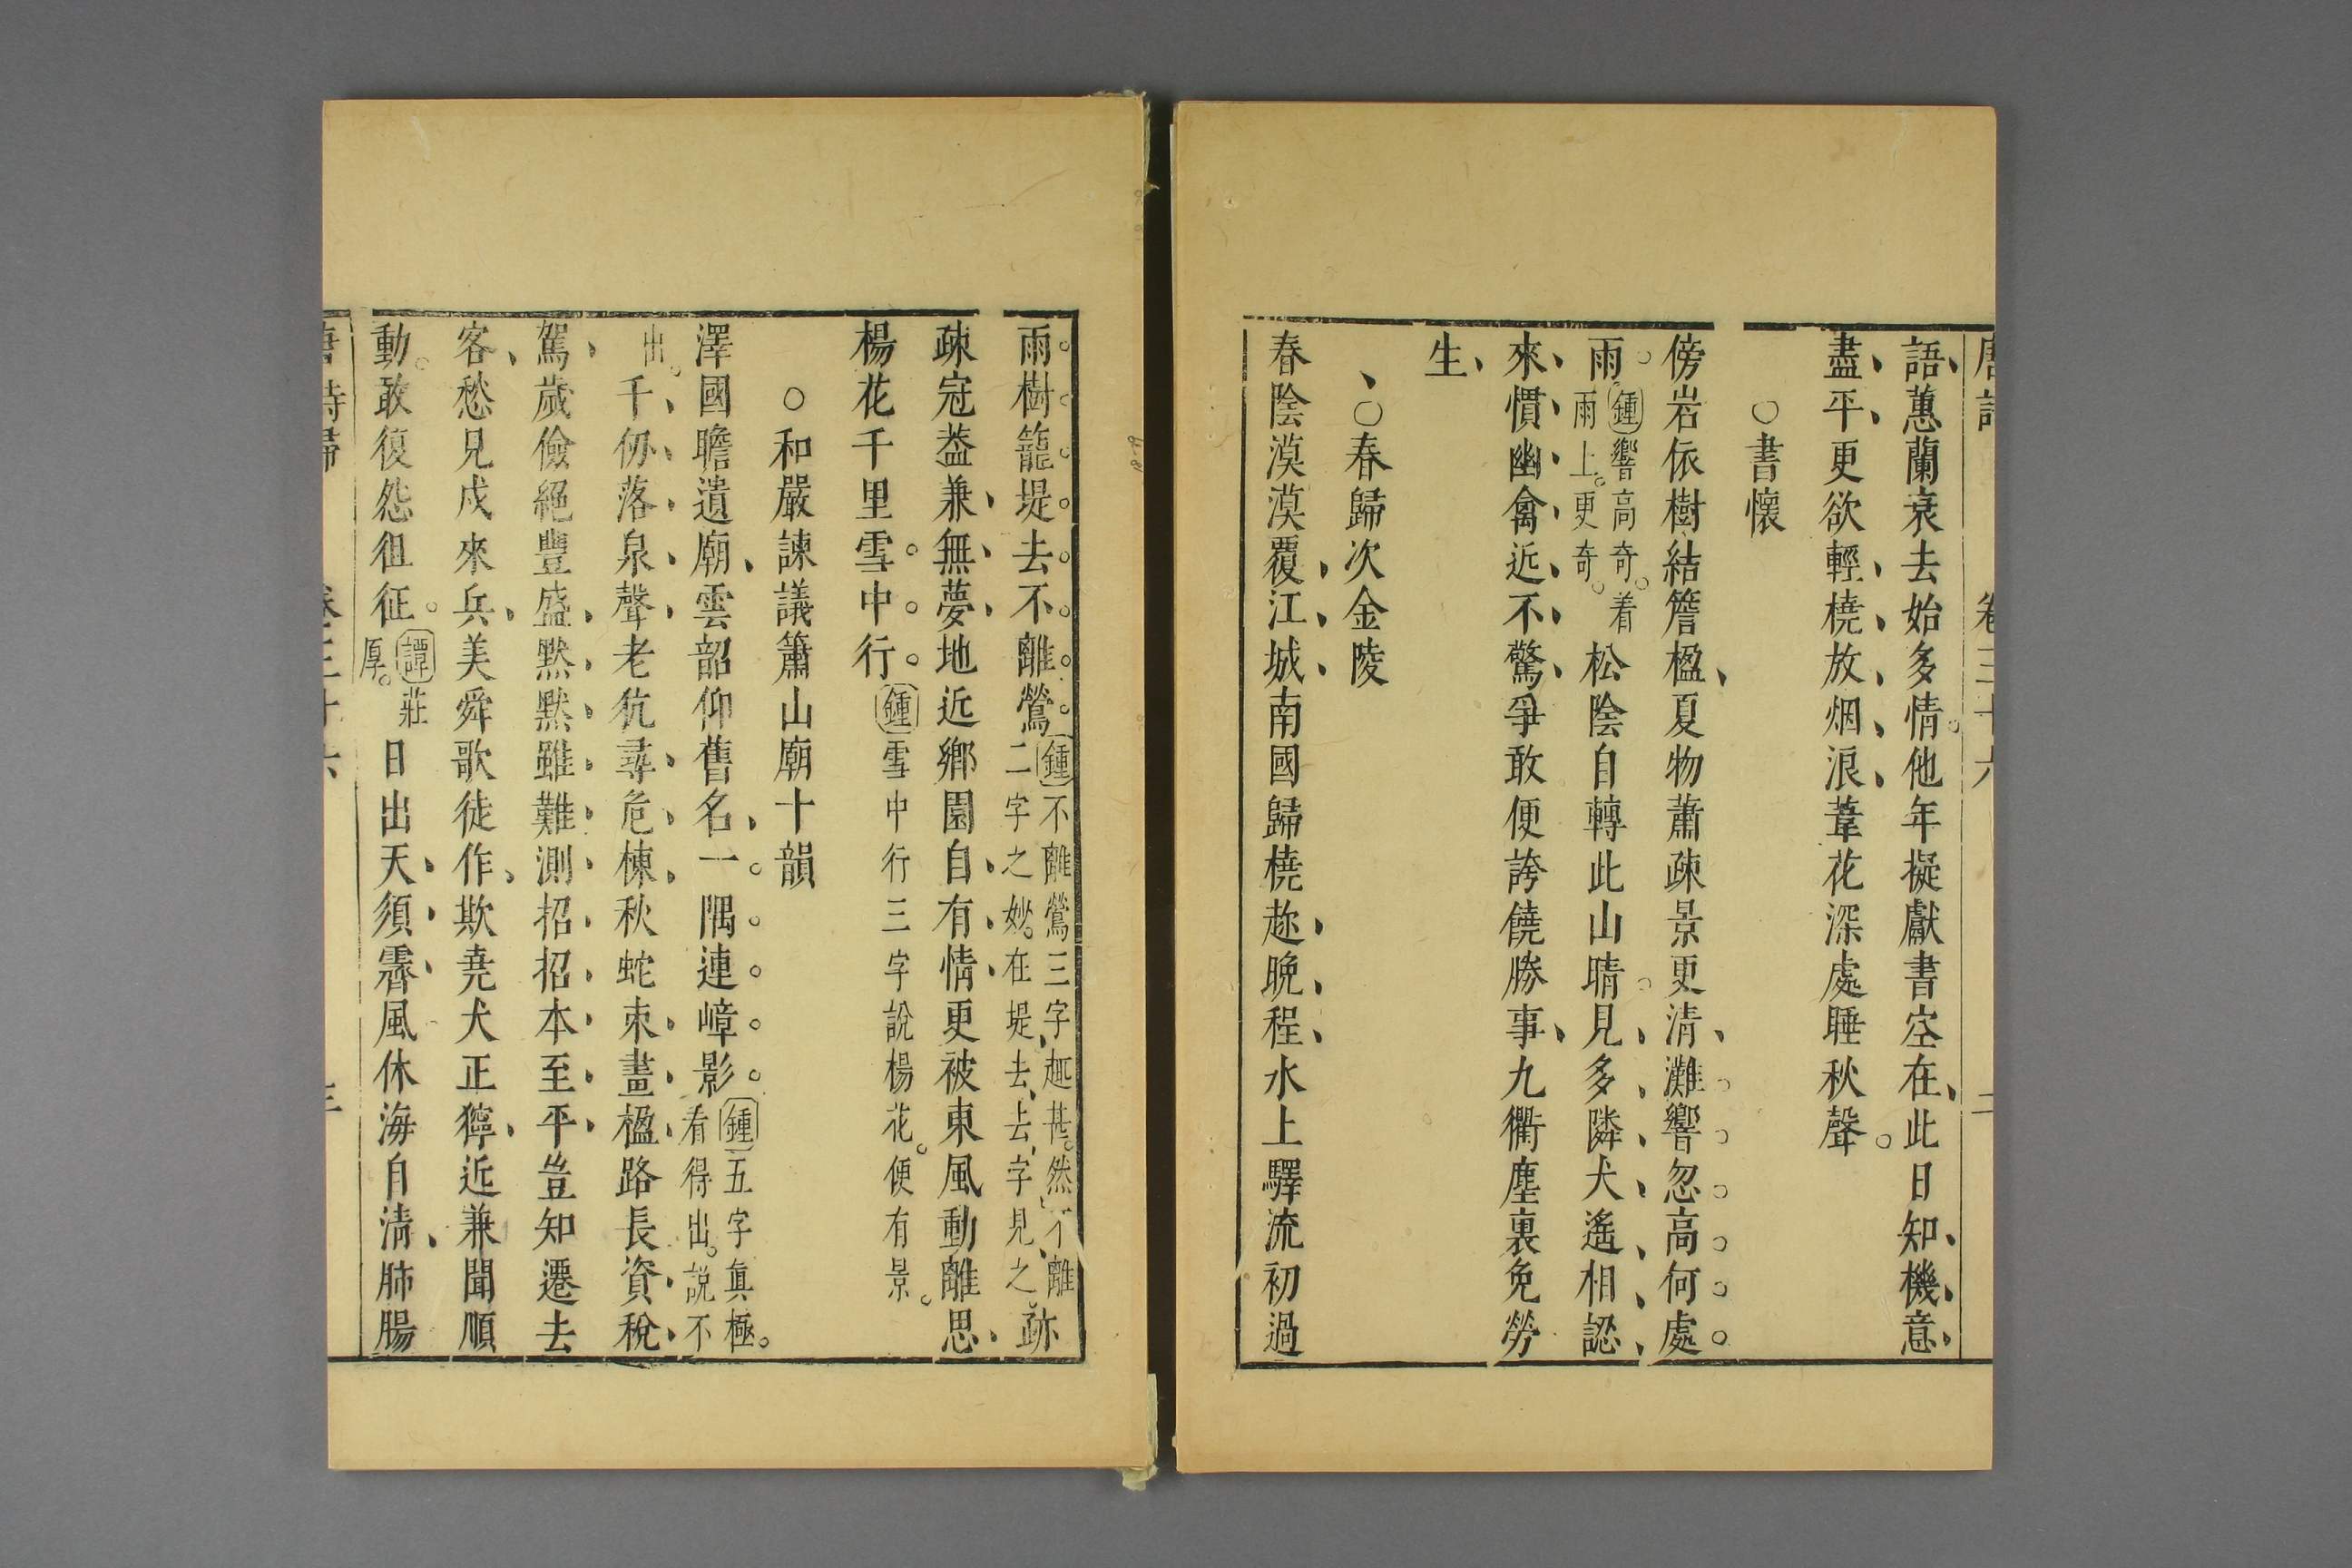 語蕙蘭衰去始多情他年擬獻書空在此日知機意
盡平更欲輕橈放烟浪葦花深處睡秋聲
○書懷
傍岩依樹結簷楹夏物蕭疎景更清灘響忽高何處
雨鍾響高奇着雨上更奇松陰自轉此山晴見多隣犬遙相認
來慣幽禽近不驚爭敢便誇饒勝事九衢塵裏免勞
生
○春歸次金陵
春陰漠漠覆江城南國歸橈趂晚程水上驛流初過
雨樹籠堤去不離鶯鍾不離鶯三字趣甚然不離二字之妙在堤去去字見之跡
疎冠葢兼無夢地近鄉園自有情更被東風動離思
楊花千里雪中行鍾雪中行三字說楊花便有景
○和嚴諫議蕭山廟十韻
澤國瞻遺廟雲韶仰舊名一隅連嶂影鍾五字眞極看得出說不
出千仞落泉聲老狖尋危棟秋蛇束畫楹路長資稅
駕歲儉絕豐盛黙黙雖難測招招本至平豈知遷去
客愁見戍來兵美舜歌徒作欺堯犬正獰近兼聞順
動敢復怨徂征譚莊厚日出天須霽風休海自清肺腸
唐詩歸 卷三十六